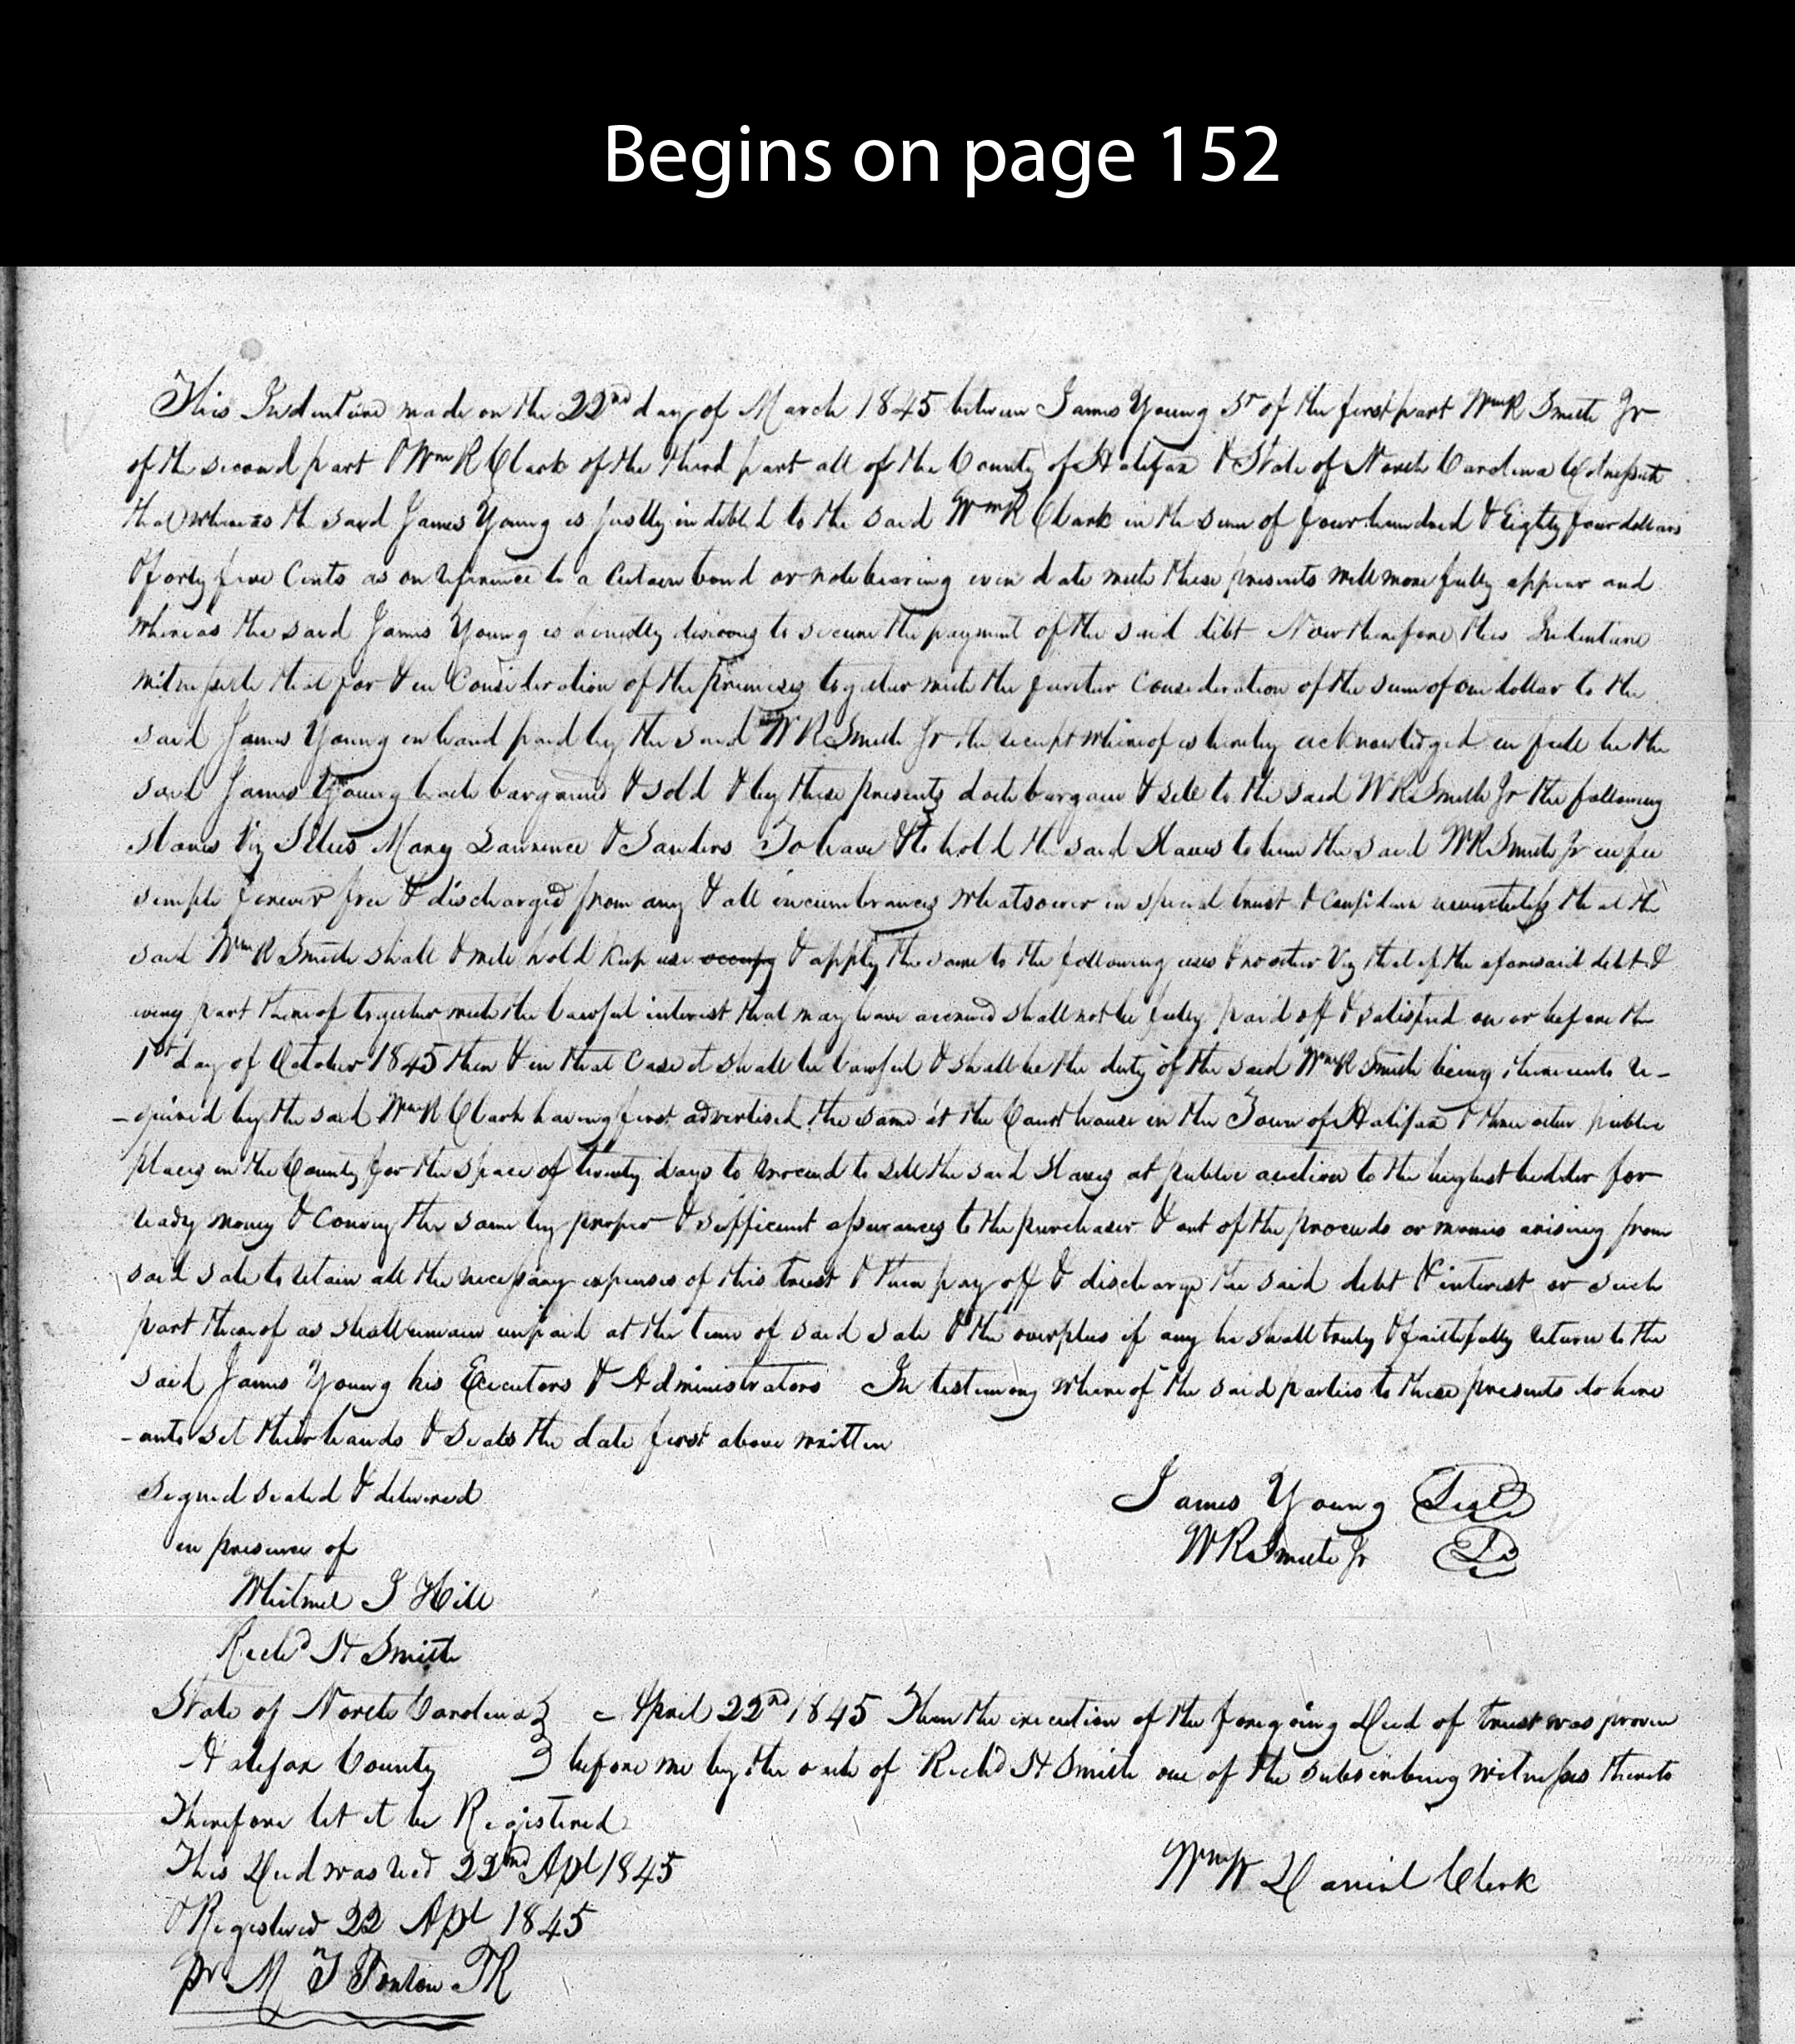 Begins on page 152
This Indenture made on the 22nd day of March 1845 between James Young Sr of the first part Wm R Smith Jr
of the second part & Wm R Clark of the third part all of the County of Halifax & State of North Carolina Witnesseth
that whereas the said James Young is justly indebted to the said Wm R Clark in the sum of four hundred & Eighty four dollars
& forty five Cents as on reference to a Certain bond or note bearing even date with these presents will more fully appear and
whereas the said James Young is honestly desirous to secure the payment of the said debt Now therefore this Indenture
witnesseth that for & in Consideration of the premises together with the further Consideration of the sum of one dollar to the
said James Young in hand paid by the said W R Smith Jr the receipt whereof is hereby acknowledged in full he the
said James Young hath bargained & sold & by these presents doth bargain & sell to the said W R Smith Jr the following
slaves Viz Mary Lawrence & Sanders To have & to hold the said Slaves to him the said W R Smith Jr in fee
simple forever free & discharged from any & all incumbrances whatsoever in special trust & Confidence nevertheless that the
said Wm R Smith shall & will hold keep use occupy & apply the same to the following uses & no other Viz that if the aforesaid debt &
every part thereof together with the lawful interest that may have accrued shall not be fully paid off & satisfied on or before the
1st day of October 1845 then & in that Case it shall be lawful & shall be the duty of the said Wm R Smith being thereunto re-
-quired by the said Wm R Clark having first advertised the same at the Court house in the Town of Halifax & three other public
places in the County for the space of twenty days to proceed to sell the said Slaves at public auction to the highest bidder for
ready money & Convey the same by proper & sufficient assurances to the purchaser & out of the proceeds or monies arising from
said sale to retain all the necessary expenses of this trust & then pay off & discharge the said debt & interest or such
part thereof as shall remain unpaid at the time of said sale & the overplus if any he shall truly & faithfully return to the
said James Young his Executors & Administrators In testimony whereof the said parties to these presents do here
-unto set their hands & seals the date first above written
Signed sealed & delivered
in presence of
James Young Seal
W R Smith Jr
Whitmel J Hill
Richd H Smith
State of North Carolina } April 22nd 1845 Then the execution of the foregoing Deed of trust was proven
Halifax County } before me by the oath of Richd H Smith one of the subscribing witnesses thereto
Therefore let it be Registered
Wm W Daniel Clerk
This Deed was recd 22nd Apl 1845
& Registered 22 Apl 1845
pr M T Ponton PR